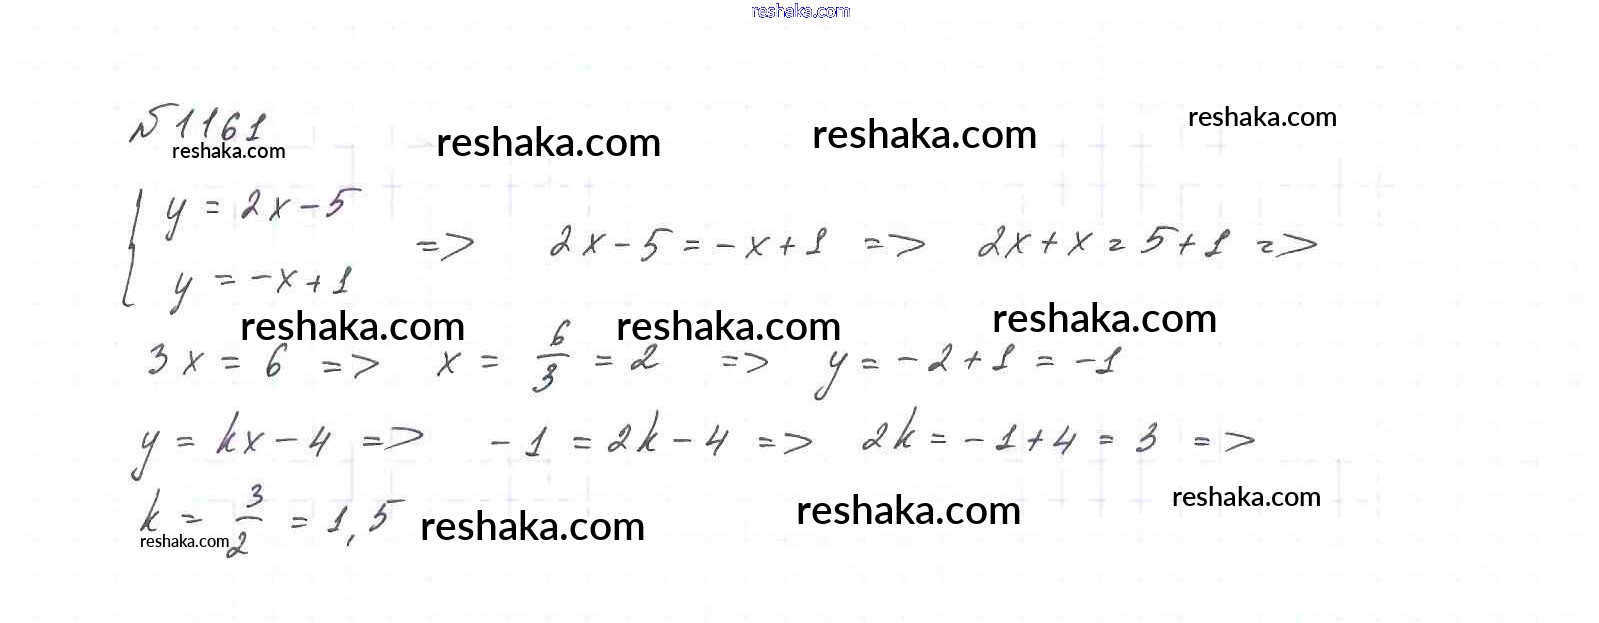 reshaka.com
№1161
reshaka.com reshaka.com reshaka.com reshaka.com
{ y = 2x - 5
y = -x + 1
=> 2x - 5 = -x + 1 => 2x + x = 5 + 1 =>
reshaka.com reshaka.com reshaka.com
3x = 6 => x = 6/3 = 2 => y = -2 + 1 = -1
y = kx - 4 => -1 = 2k - 4 => 2k = -1 + 4 = 3 =>
k = 3/2 = 1,5
reshaka.com reshaka.com reshaka.com reshaka.com